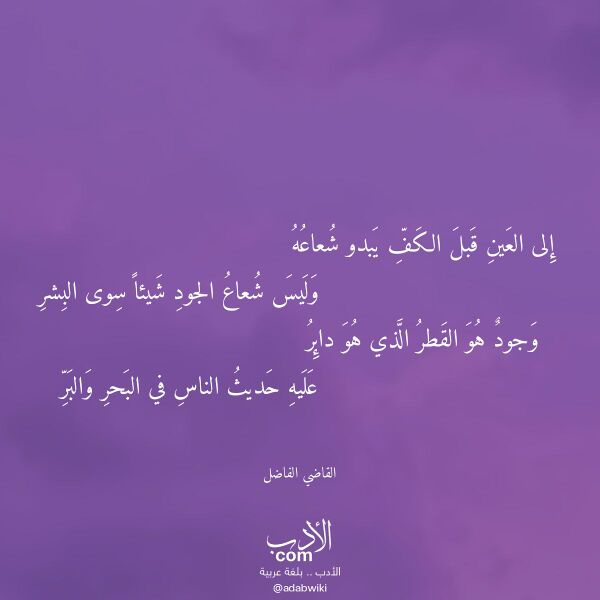 إِلى العَينِ قَبلَ الكَفِّ يَبدو شُعاعُهُ
وَلَيسَ شُعاعُ الجودِ شَيئاً سِوى البِشرِ
وَجودٌ هُوَ القَطرُ الَّذي هُوَ دايِرُ
عَلَيهِ حَديثُ الناسِ في البَحرِ وَالبَرِّ
القاضي الفاضل
الأدب
com
الأدب .. بلغة عربية
@adabwiki